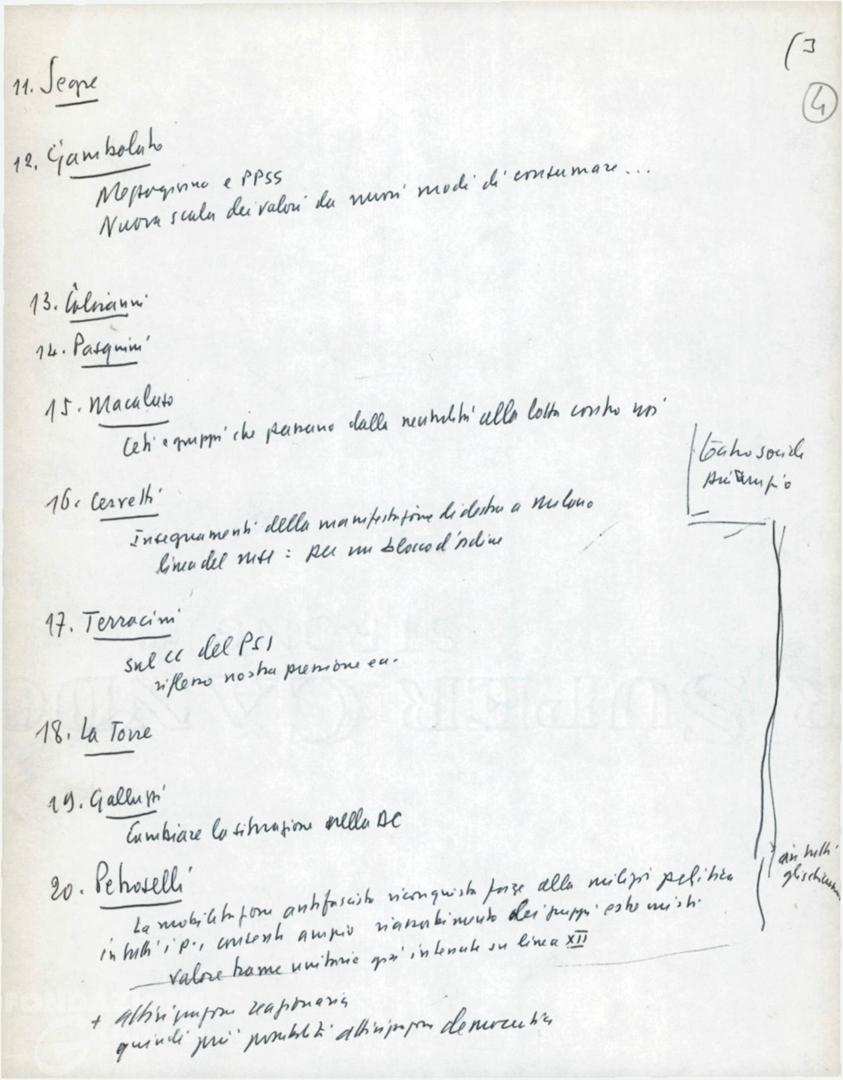 (3
4
11. Segre
12. Gambolato
Mezzogiorno e PPSS
Nuova scala dei valori da nuovi modi di consumare...
13. Colajanni
14. Pasquini
15. Macaluso
Ceti e gruppi che passano dalla neutralità alla lotta contro noi
teatro sociale
più ampio
16. Cervetti
Insegnamenti della manifestazione di destra a Milano
linea del MSI : per un blocco d'ordine
17. Terracini
sul CC del PSI
riflesso nostra pressione
18. La Torre
19. Galluzzi
Cambiare la situazione nella DC
in tutti
20. Petroselli
La mobilitazione antifascista riconquista forze alla milizia politica
in tutti i p., consente ampio riassorbimento dei gruppi estremisti
valore trame unitarie già intessute su linea XII
+ reazionaria
quindi più possibilità democratica
FONDAZ